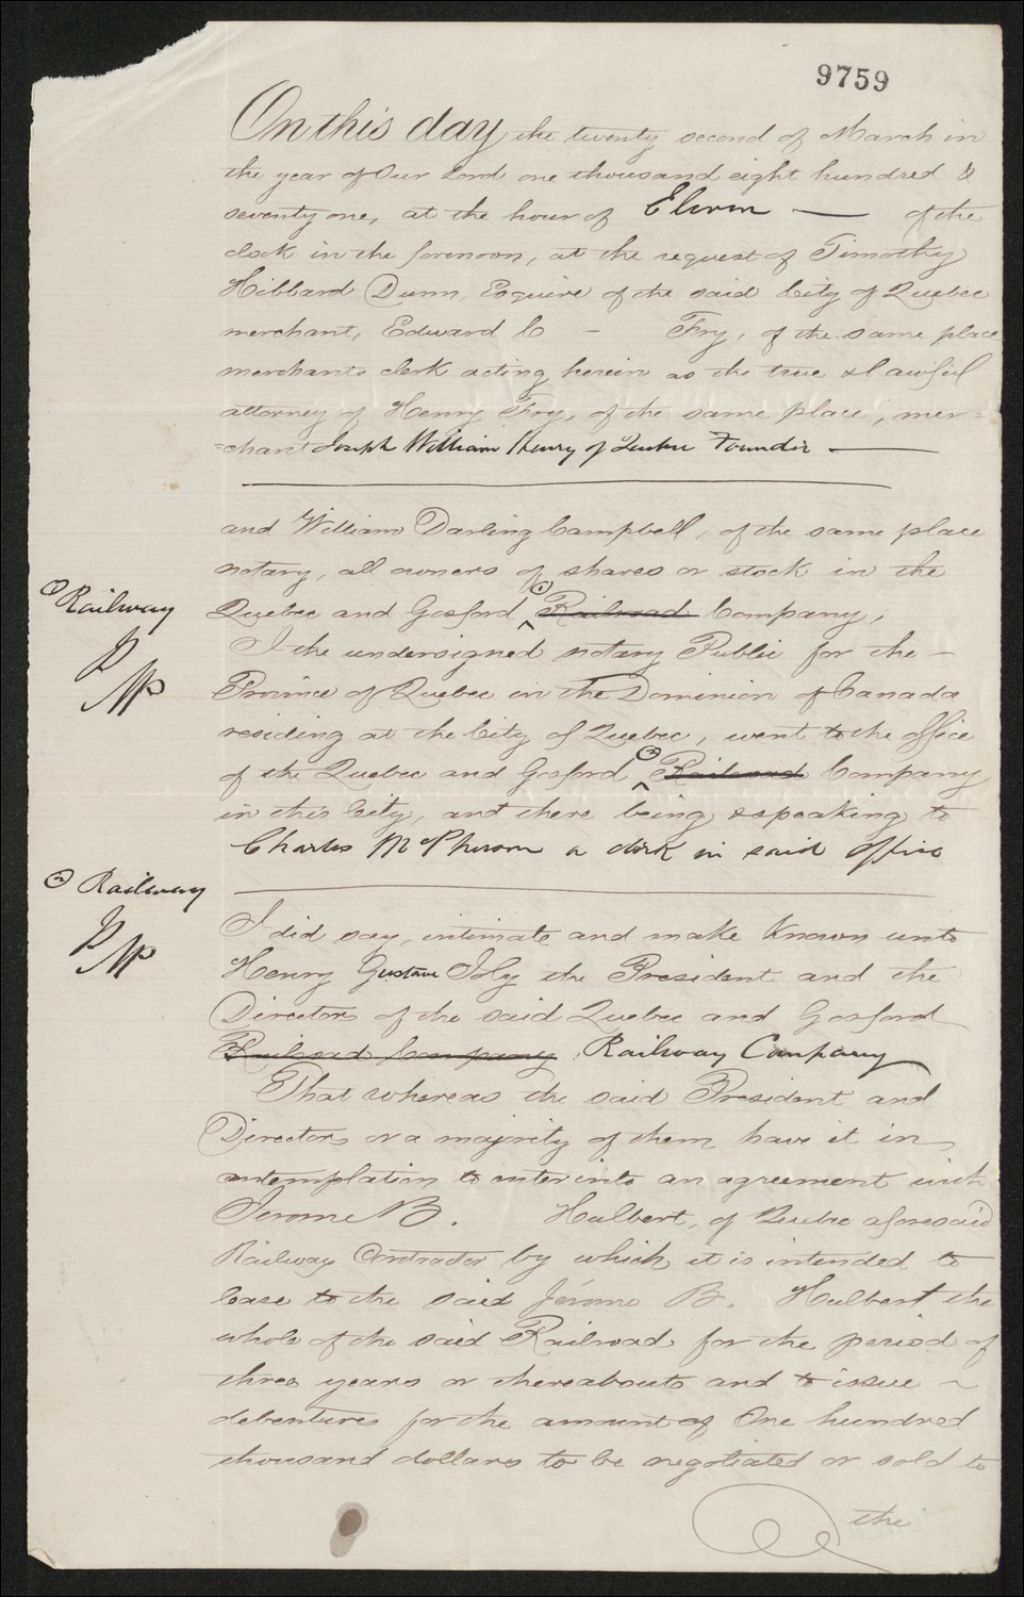 9759
On this day the twenty second of March in
the year of Our Lord one thousand eight hundred &
seventy one, at the hour of Eleven — of the
clock in the forenoon, at the request of Timothy
Hibbard Dunn, Esquire of the said City of Quebec
merchant, Edward C – Fry, of the same place
merchants clerk acting herein as the true & lawful
attorney of Henry Fry, of the same place, mer=
=chant Joseph William Henry of Quebec Founder —
and William Darling Campbell, of the same place
notary, all owners of shares or stock in the
① Railway
Quebec and Gosford ① Railroad Company,
I the undersigned notary Public for the –
Province of Quebec in the Dominion of Canada
residing at the City of Quebec, went to the office
of the Quebec and Gosford ② Railroad Company
in this City, and there being & speaking to
Charles McPherson a clerk in said office
② Railway
I did say, intimate and make known unto
Henry Gustave Joly the President and the
Directors of the said Quebec and Gosford
Railroad Company Railway Company
That whereas the said President and
Directors or a majority of them have it in
contemplation to enter into an agreement with
Jerome B. Hulbert, of Quebec aforesaid
Railway Contractor by which it is intended to
lease to the said Jérome B. Hulbert the
whole of the said Railroad for the period of
three years or thereabouts and to issue –
debentures for the amount of One hundred
thousand dollars to be negotiated or sold to
the